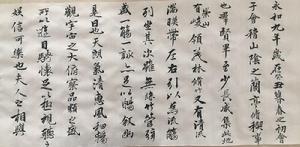 永和九年歲在癸丑暮春之初會
于會稽山陰之蘭亭脩禊事
也羣賢畢至少長咸集此地
有崇山峻領茂林脩竹又有清流
湍暎帶左右引以為流觴
列坐其次雖無絲竹管弦
盛一觴一詠亦足以暢敘幽
是日也天朗氣清惠風和暢
觀宇宙之大俯察品類之盛
所以遊目騁懷足以極視聽
娛信可樂也夫人之相與